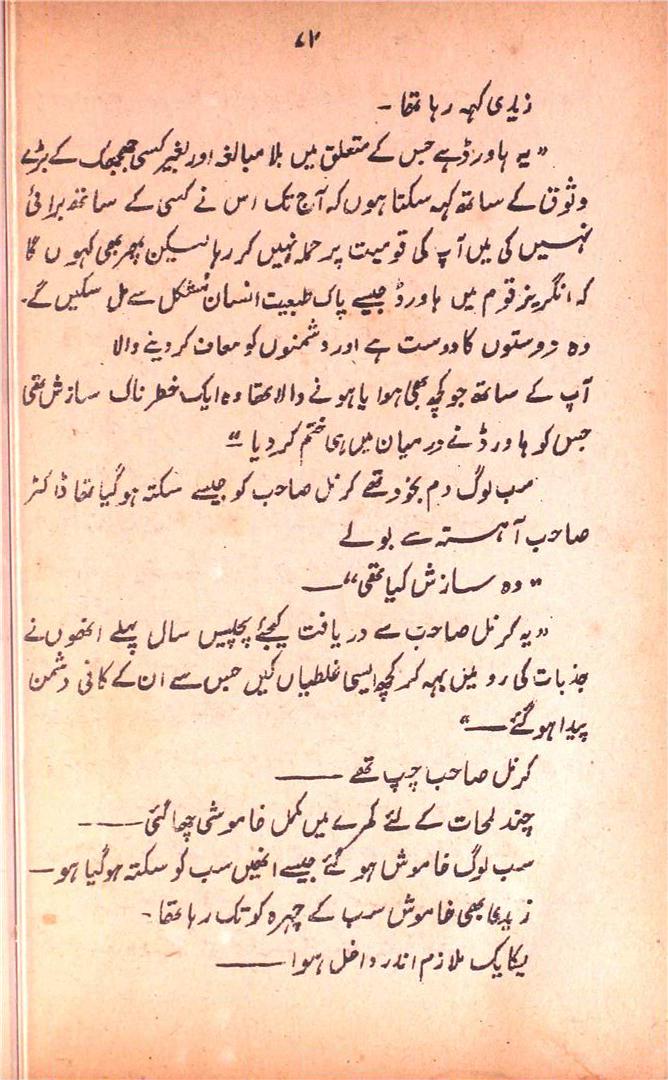 ۷۲
زیدی کہہ رہا تھا۔
"یہ ہاورڈ ہے جس کے متعلق میں بلا مبالغہ اور بغیر کسی جھجھک کے بڑے
وثوق کے ساتھ کہہ سکتا ہوں کہ آج تک اس نے کسی کے ساتھ برائی
نہیں کی میں آپ کی قومیت پر حملہ نہیں کر رہا لیکن پھر بھی کہوں گا
کہ انگریز قوم میں ہاورڈ جیسے پاک طبیعت انسان مشکل سے مل سکیں گے۔
وہ دوستوں کا دوست ہے اور دشمنوں کو معاف کر دینے والا
آپ کے ساتھ جو کچھ بھی ہوا یا ہونے والا تھا وہ ایک خطرناک سازش تھی
جس کو ہاورڈ نے درمیان میں ہی ختم کر دیا"
سب لوگ دم بخود تھے کرنل صاحب کو جیسے سکتہ ہو گیا تھا ڈاکٹر
صاحب آہستہ سے بولے
"وہ سازش کیا تھی"—
"یہ کرنل صاحب سے دریافت کیجئے پچیس سال پہلے انھوں نے
جذبات کی رو میں بہہ کر کچھ ایسی غلطیاں کیں جس سے ان کے کافی دشمن
پیدا ہو گئے—"
کرنل صاحب چپ تھے —
چند لمحات کے لئے کمرے میں مکمل خاموشی چھا گئی —
سب لوگ خاموش ہو گئے جیسے انھیں سب کو سکتہ ہو گیا ہو—
زیدی بھی خاموش سب کے چہرہ کو تک رہا تھا۔
یکایک ملازم اندر داخل ہوا —